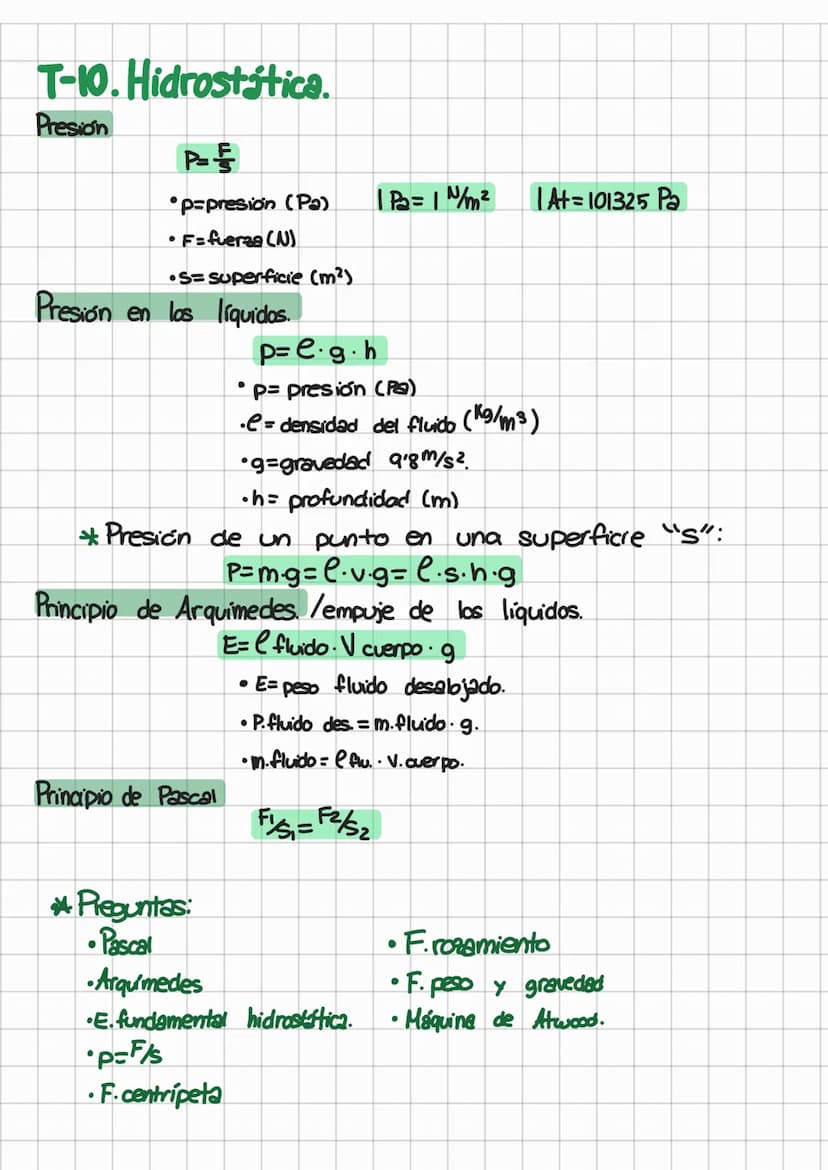 T-10. Hidrostática.
Presión
P= F/S
•p=presión (Pa) 1 Pa= 1 N/m² 1 At= 101325 Pa
• F= fuerza (N)
•S= superficie (m²)
Presión en los líquidos.
p= ρ·g·h
• p= presión (Pa)
•ρ= densidad del fluido (Kg/m³)
•g=gravedad 9'8 m/s².
•h= profundidad (m)
* Presión de un punto en una superficie "s":
P=m·g= ρ·v·g= ρ·s·h·g
Principio de Arquímedes. /empuje de los líquidos.
E= ρ fluido· V cuerpo · g
• E= peso fluido desalojado.
• P.fluido des. = m.fluido · g.
•m.fluido= ρ flu. · V.cuerpo.
Principio de Pascal
F1/S1 = F2/S2
* Preguntas:
• Pascal
•Arquímedes
•E. fundamental hidrostática.
•p=F/s
• F. centrípeta
• F. rozamiento
• F. peso y gravedad
• Máquina de Atwood.